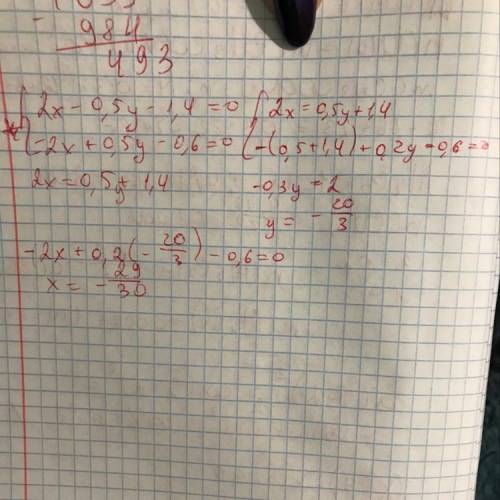 - 984
493
{ 2x - 0,5y - 1,4 = 0 { 2x = 0,5y + 1,4
{ -2x + 0,5y - 0,6 = 0 { -(0,5 + 1,4) + 0,2y - 0,6 = 0
2x = 0,5y + 1,4 -0,3y = 2
y = - 20/3
-2x + 0,2(- 20/3) - 0,6 = 0
x = - 29/30